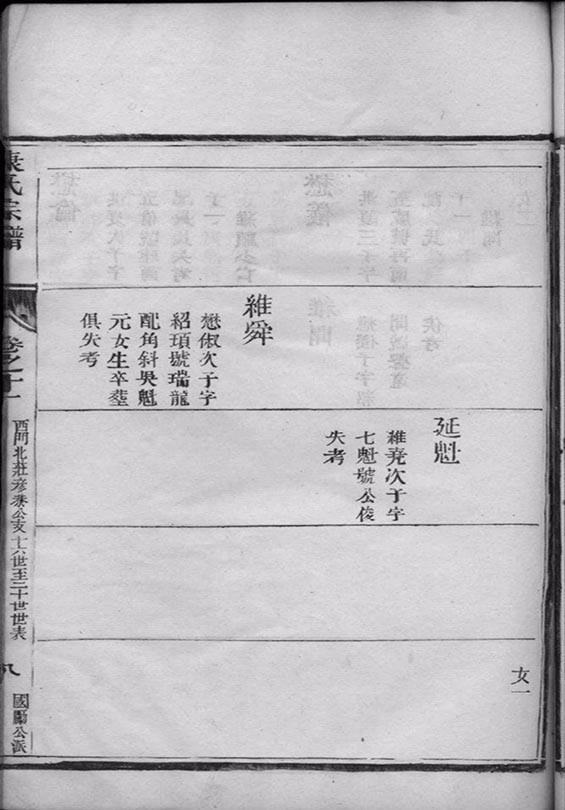 女一
延魁
維堯次子字
七魁號公俊
失考
維舜
懋俶次子字
紹頊號瑞龍
配角斜吳魁
元女生卒塟
俱失考
氏宗譜
卷之十一
西門北莊彦
公支十六世至二十世世表
八
國屬公派